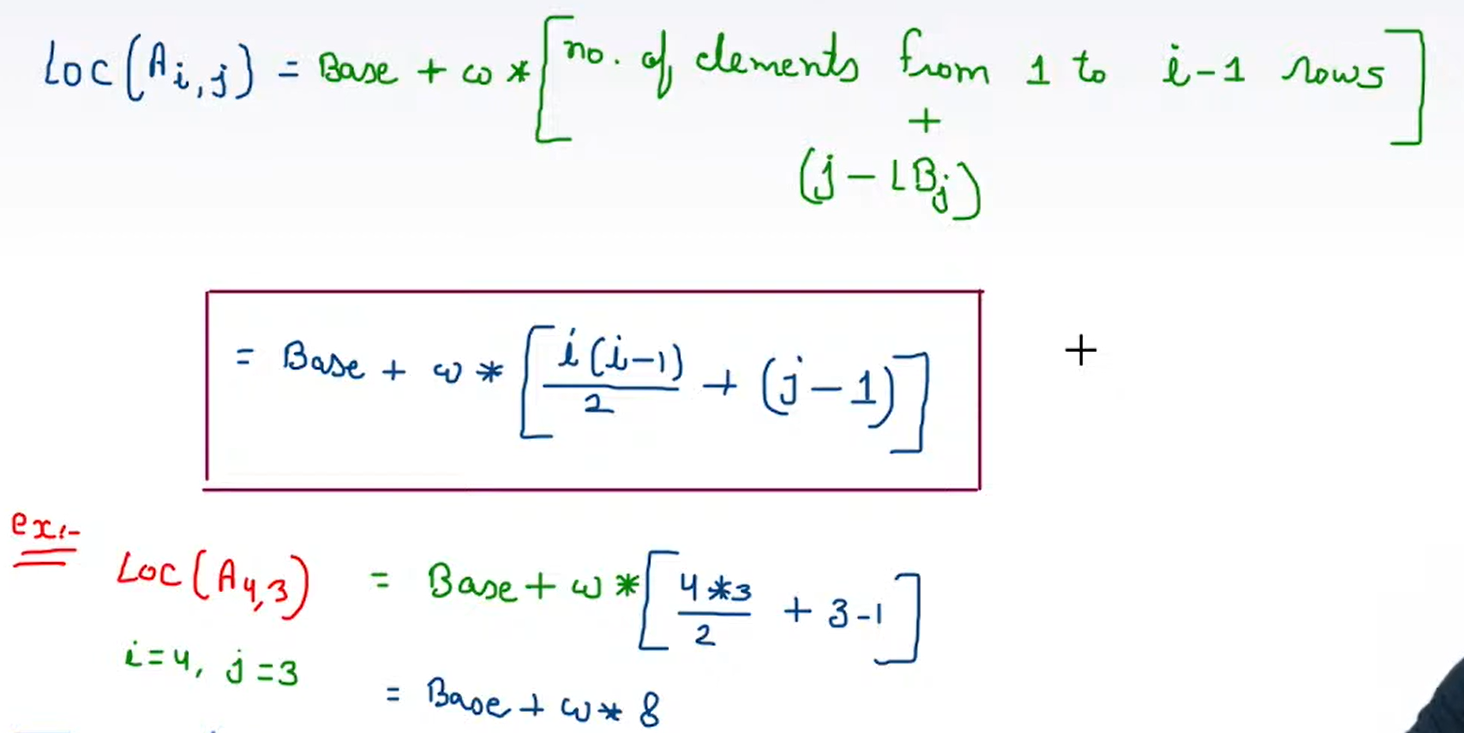 Loc(A i,j) = Base + ω * [no. of elements from 1 to i-1 rows]
+
(j - LBj)
= Base + ω * [i(i-1)/2 + (j-1)]
ex:-
Loc(A 4,3) = Base + ω * [4*3/2 + 3-1]
i=4, j=3
= Base + ω * 8